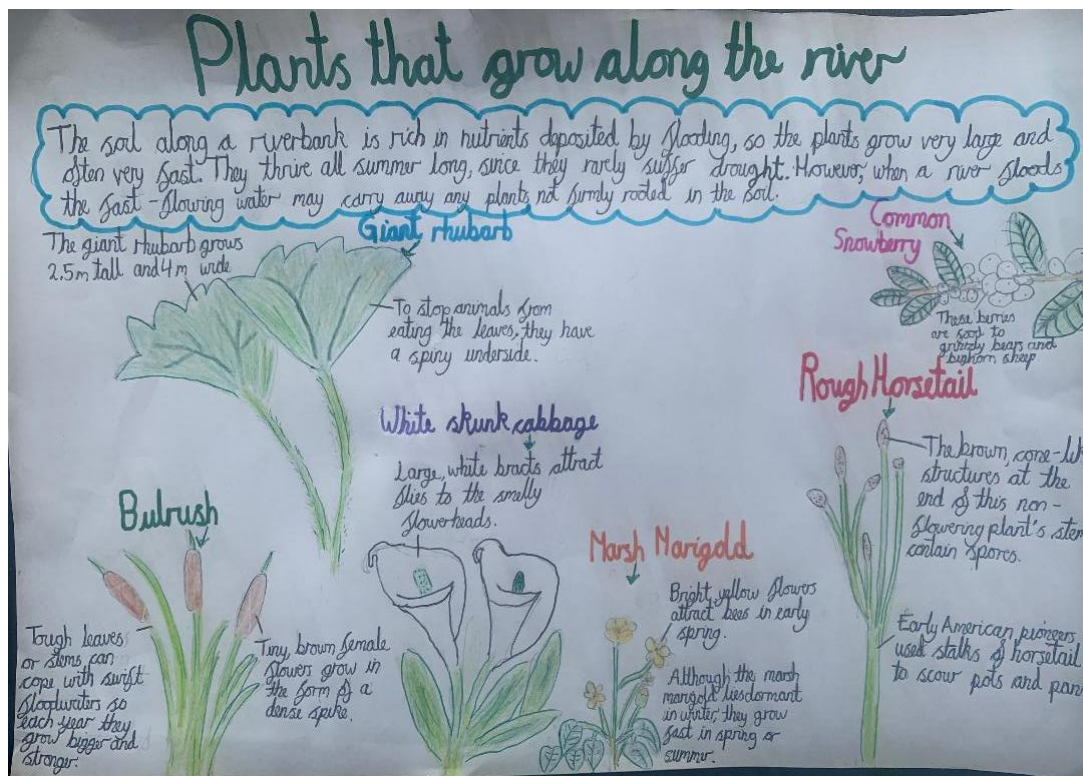 Plants that grow along the river
The soil along a riverbank is rich in nutrients deposited by flooding, so the plants grow very large and
often very fast. They thrive all summer long, since they rarly suffer drought. However, when a river floods
the fast-flowing water may carry away any plants not firmly rooted in the soil.
Giant rhubarb
The giant rhubarb grows
2.5m tall and 4m wide
To stop animals from
eating the leaves, they have
a spiny underside.
Common
Snowberry
These berries
are food to
grizzly bears and
bighorn sheep
White skunk cabbage
Large, white bracts attract
flies to the smelly
flowerheads.
Rough Horsetail
The brown, cone-li
structures at the
end of this non-
flowering plant's ste
contain spores.
Early American pioneers
used stalks of horsetail
to scour pots and pan
Bulrush
Tough leaves
or stems can
cope with swift
floodwaters so
each year they
grow bigger and
stronger.
Tiny, brown female
flowers grow in
the form of a
dense spike.
Marsh Marigold
Bright, yellow flowers
attract bees in early
spring.
Although the marsh
marigold lies dormant
in winter, they grow
fast in spring or
summer.